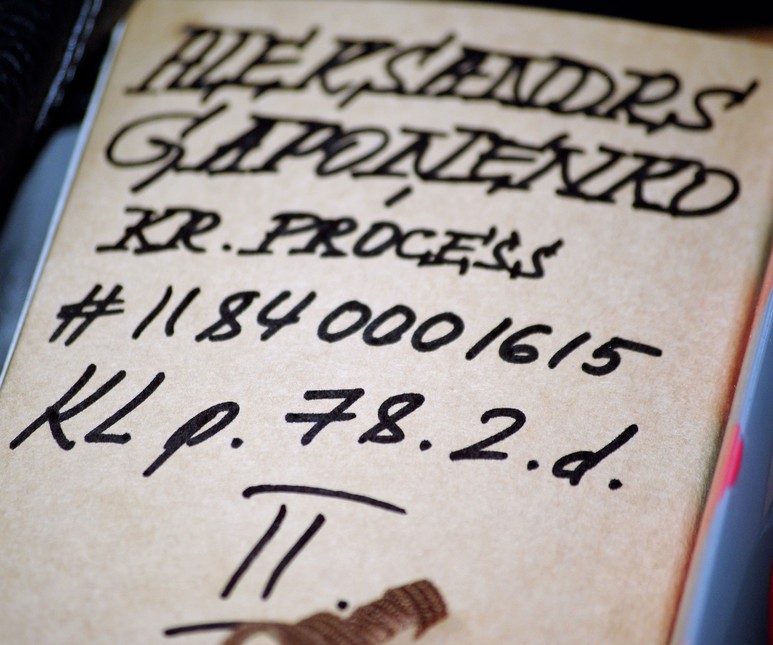 ALEKSANDRS
GAPOŅENKO
KR. PROCESS
# 11840001615
KL p. 78.2.d.
II.